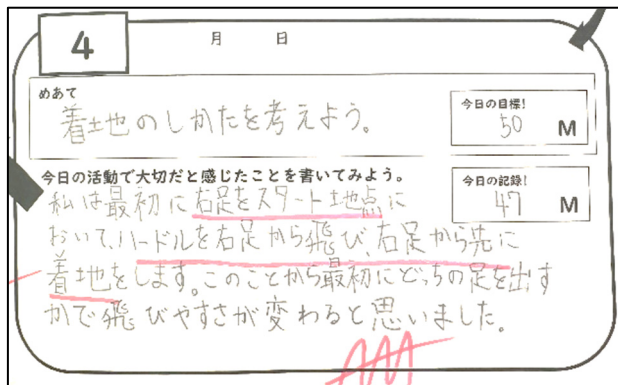 4
月 日
めあて
着地のしかたを考えよう。
今日の目標!
50 M
今日の活動で大切だと感じたことを書いてみよう。
今日の記録!
47 M
私は最初に右足をスタート地点に
おいて、ハードルを右足から飛び、右足から先に
着地をします。このことから最初にどっちの足を出す
かで飛びやすさが変わると思いました。
AAA